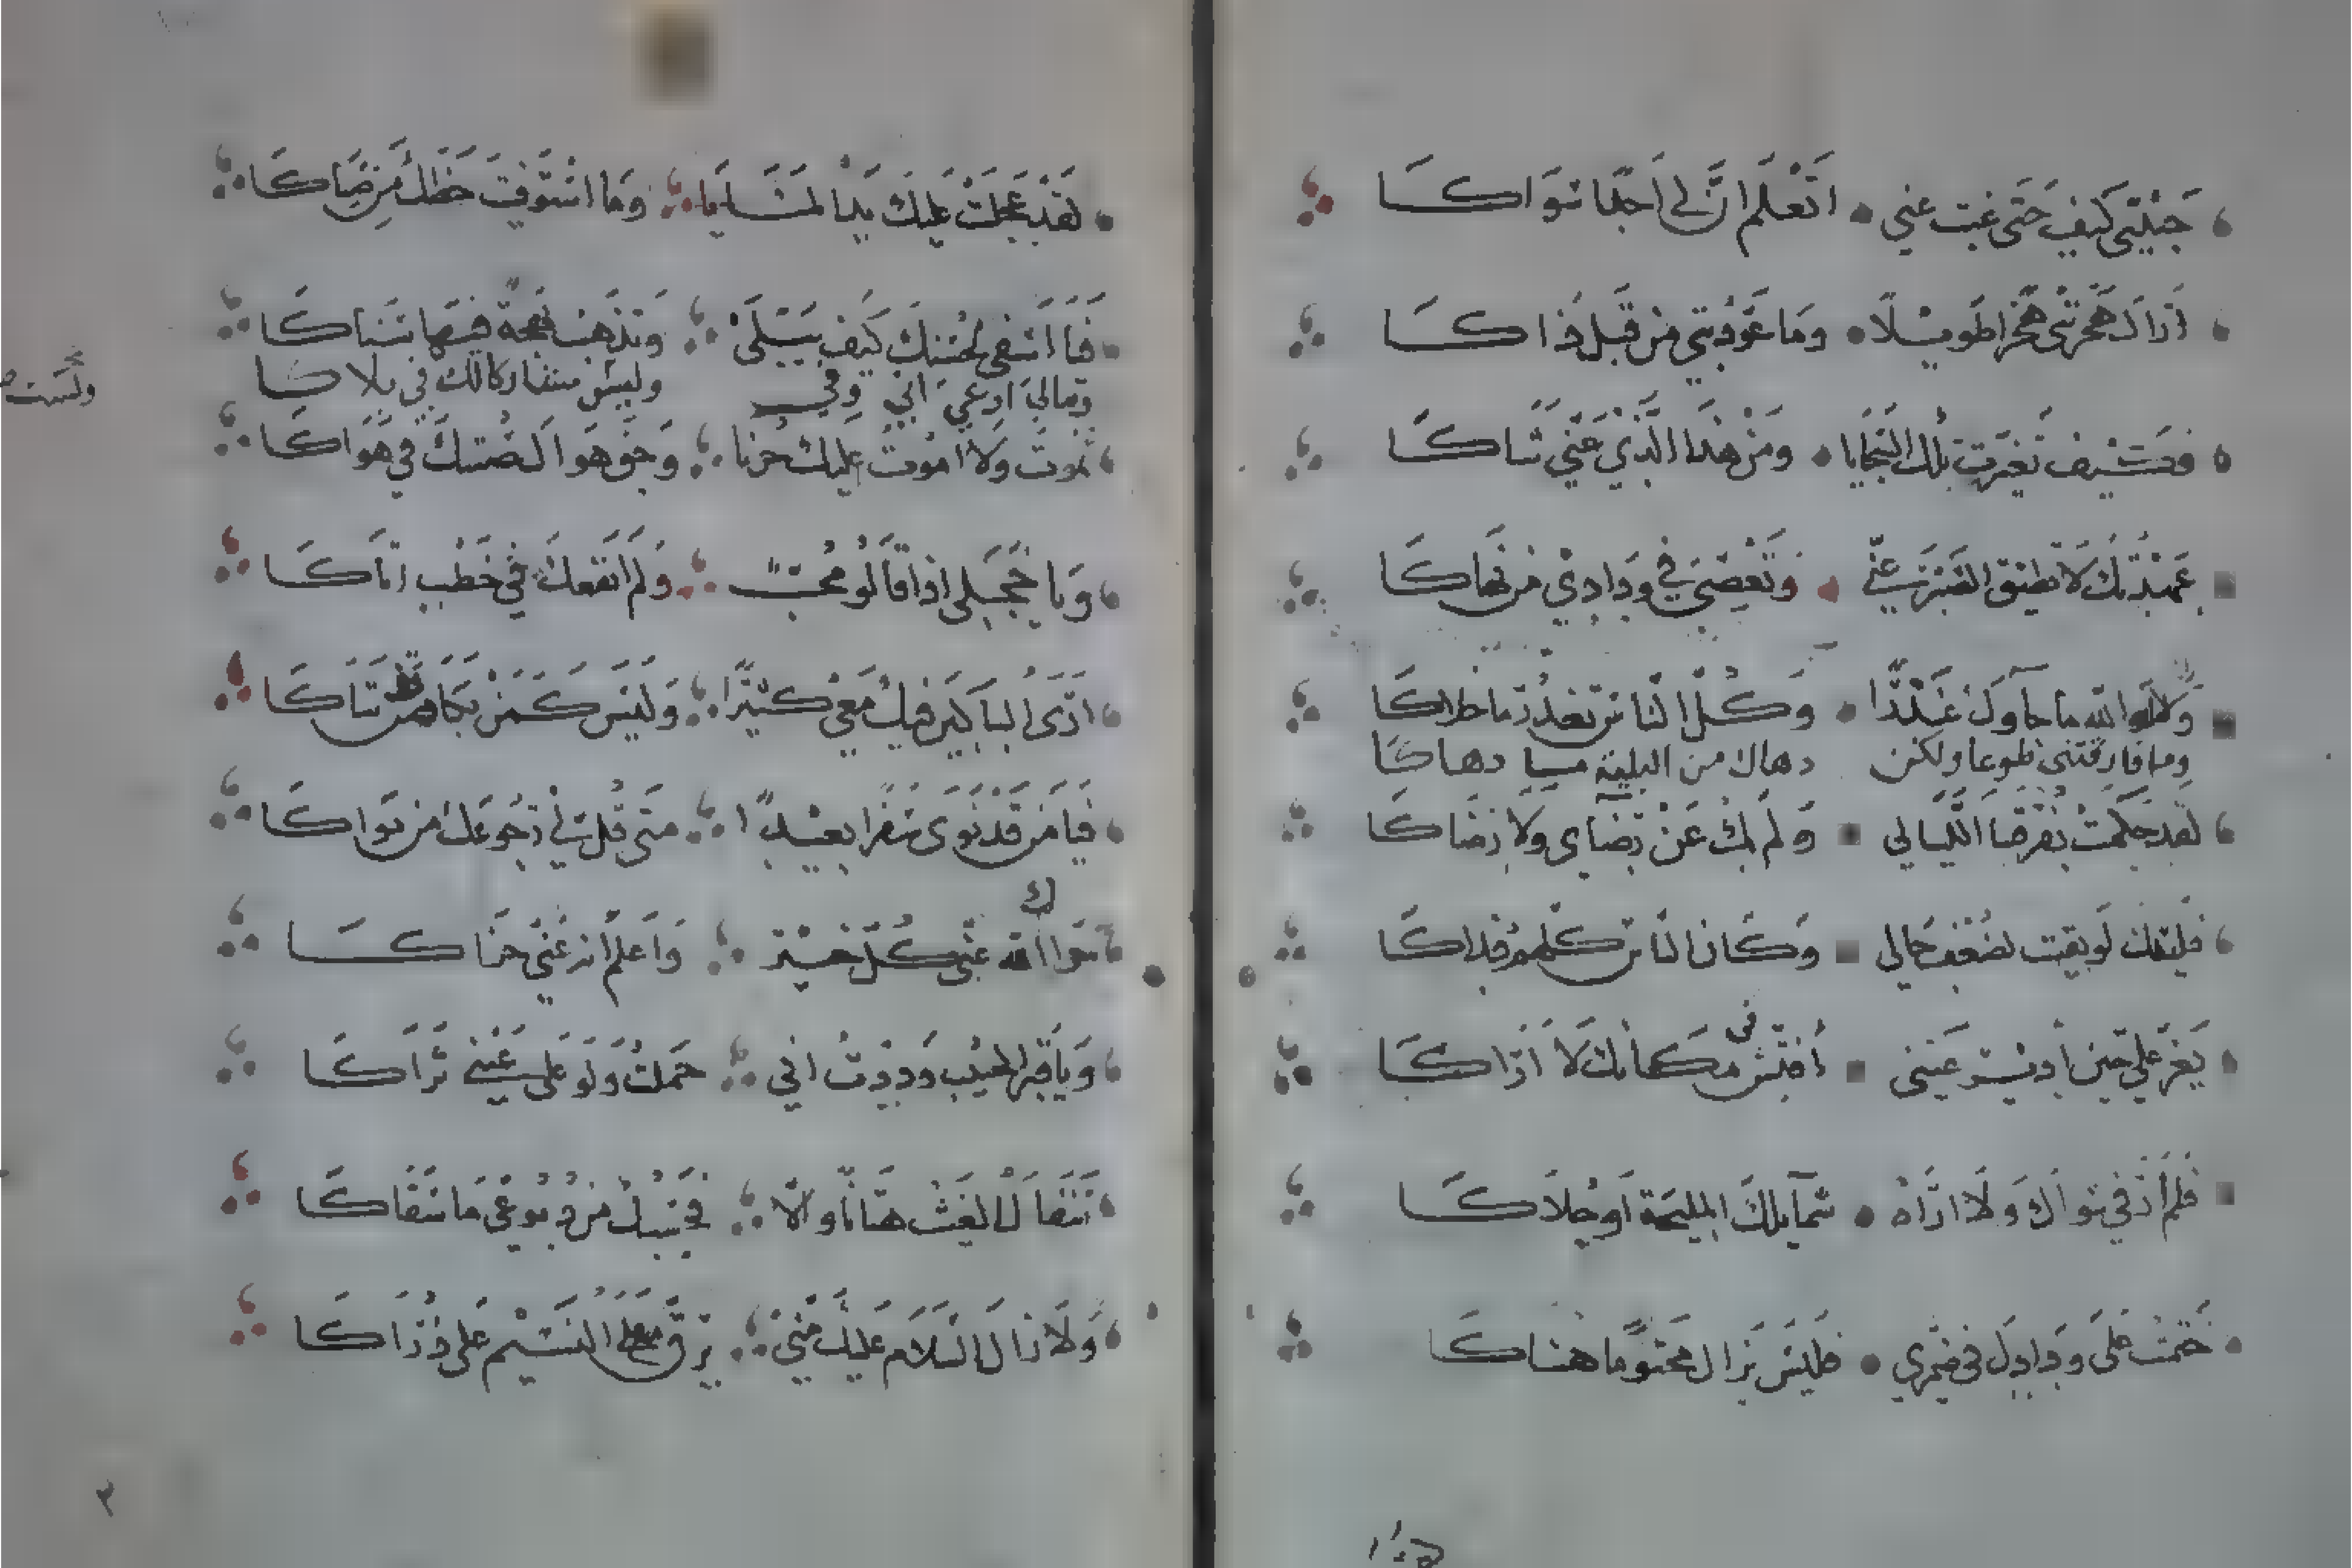 حبيبي كيف حتى غبت عني اتعلم ان لي احدا سواكا
اراك هجرتني هجرا طويلا وما عودتني من قبل ذاكا
فكيف تغيرت تلك السجايا ومن هذا الذي عني ثناكا
عهدتك لا تطيق الصبر عني وتعصي في ودادي من نهاكا
ولا والله ما حاولت غدرا وكل الناس تغدر ما خلاكا
وما فارقتني طوعا ولكن دهاك من المنية ما دهاكا
لقد حكمت بفرقتنا الليالي ولم يك عن رضاي ولا رضاكا
فليتك لو بقيت لضعف حالي وكان الناس كلهم فداكا
يعز علي حين ادير عيني افتش في مكانك لا اراكا
فلم ار في سواك ولا اراه شمايلك المليحة او حلاكا
ختمت على ودادك في ضميري فليس يزال مختوما هناكا
لقد عجلت عليك يد المنايا وما استوفيت حظك من صباكا
فيا اسفي لحسنك كيف يبلى ويذهب بعد بهجته سناكا
ومالي ادعي اني وفي وليس مشاركا لك في بلاكا
ولست
تموت ولا اموت عليك حزنا وحق هواك خنتك في هواكا
ويا خجلي اذا قالوا محب ولم انفعك في خطب اتاكا
ارى الباكين فيك معي كثيرا وليس كمن بكى من تباكا
فيا من قد نوى سفرا بعيدا متى قل لي رجوعك من نواكا
جزاك الله عني كل خير واعلم انه عني جزاكا
ويا قبر الحبيب وددت اني حملت ولو على عيني ثراكا
سقاك الغيث هتانا والا فحسبك من دموعي ما سقاكا
ولا زال السلام عليك مني يرق مع النسيم على ذراكا
٣